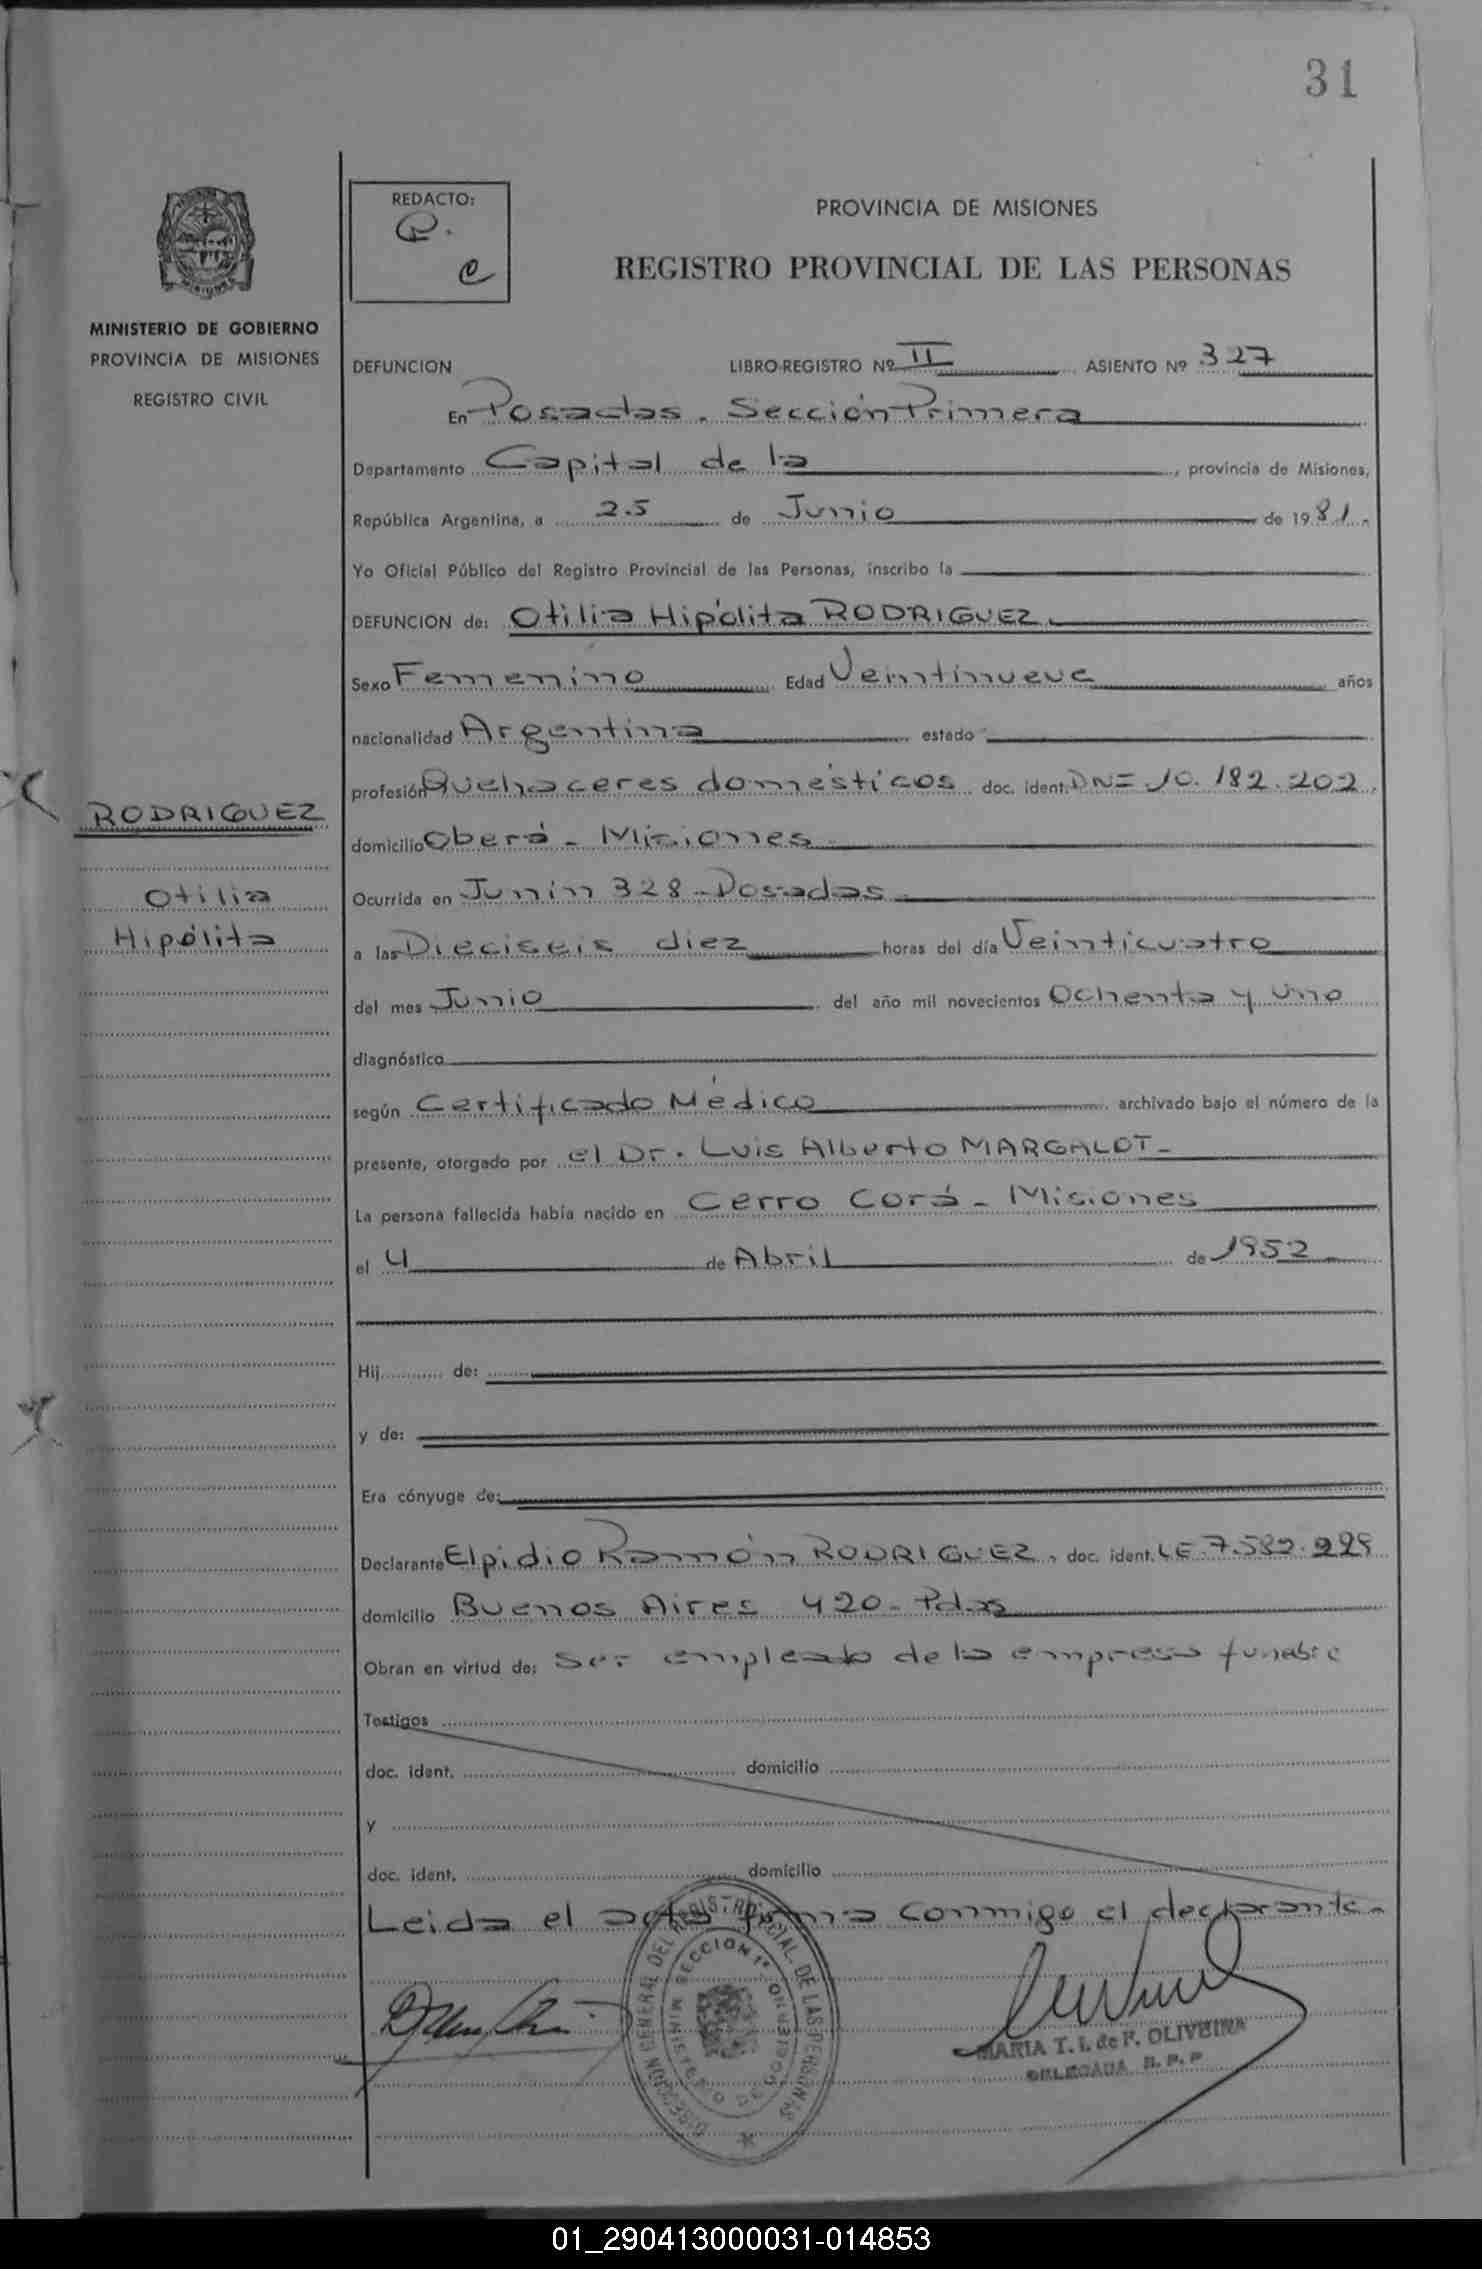 31
REDACTO:
MINISTERIO DE GOBIERNO
PROVINCIA DE MISIONES
REGISTRO CIVIL
PROVINCIA DE MISIONES
REGISTRO PROVINCIAL DE LAS PERSONAS
DEFUNCION LIBRO-REGISTRO Nº II ASIENTO Nº 327
En Posadas. Sección Primera
Departamento Capital de la, provincia de Misiones,
República Argentina, a 25 de Junio de 1981.
Yo Oficial Público del Registro Provincial de las Personas, inscribo la
DEFUNCION de: Otilia Hipólita RODRIGUEZ.
Sexo Femenino Edad Veintinueve años
nacionalidad Argentina estado
profesión Quehaceres domésticos doc. ident. DNI 10.182.202
RODRIGUEZ
domicilio Oberá - Misiones
Otilia
Ocurrida en Junín 328 - Posadas
Hipólita
a las Dieciseis diez horas del día Veinticuatro
del mes Junio del año mil novecientos Ochenta y Uno
diagnóstico
según Certificado Médico archivado bajo el número de la
presente, otorgado por el Dr. Luis Alberto MARGALOT -
La persona fallecida había nacido en Cerro Corá - Misiones
el 4 de Abril de 1952
Hij de:
y de:
Era cónyuge de:
Declarante Elpidio Ramón RODRIGUEZ, doc. ident. LE
domicilio Buenos Aires 420 - Pdas
Obran en virtud de: Ser empleado de la empresa funebre
Testigos
doc. ident. domicilio
y
doc. ident. domicilio
Leida el acta firma conmigo el declarante.
DIRECCION GENERAL DEL REGISTRO PROVINCIAL DE LAS PERSONAS
SECCION 1ª MINISTERIO DE GOBIERNO
MARIA T. I. de F. OLIVEIRA
DELEGADA R. P. P
01_290413000031-014853